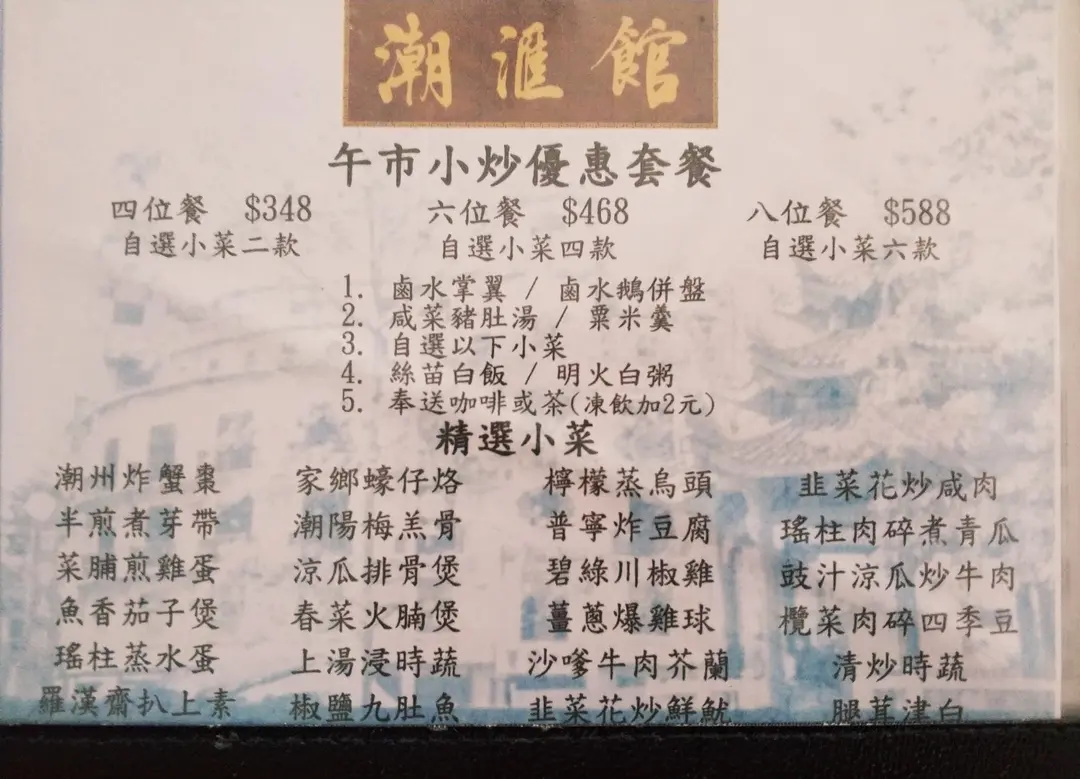 潮滙館
午市小炒優惠套餐
四位餐 $348 六位餐 $468 八位餐 $588
自選小菜二款 自選小菜四款 自選小菜六款
1. 鹵水掌翼 / 鹵水鵝併盤
2. 咸菜豬肚湯 / 粟米羹
3. 自選以下小菜
4. 絲苗白飯 / 明火白粥
5. 奉送咖啡或茶(凍飲加2元)
精選小菜
潮州炸蟹棗 家鄉蠔仔烙 檸檬蒸烏頭 韭菜花炒咸肉
半煎煮芽帶 潮陽梅羔骨 普寧炸豆腐 瑤柱肉碎煮青瓜
菜脯煎雞蛋 涼瓜排骨煲 碧綠川椒雞 豉汁涼瓜炒牛肉
魚香茄子煲 春菜火腩煲 薑蔥爆雞球 欖菜肉碎四季豆
瑤柱蒸水蛋 上湯浸時蔬 沙嗲牛肉芥蘭 清炒時蔬
羅漢齋扒上素 椒鹽九肚魚 韭菜花炒鮮魷 腿茸津白